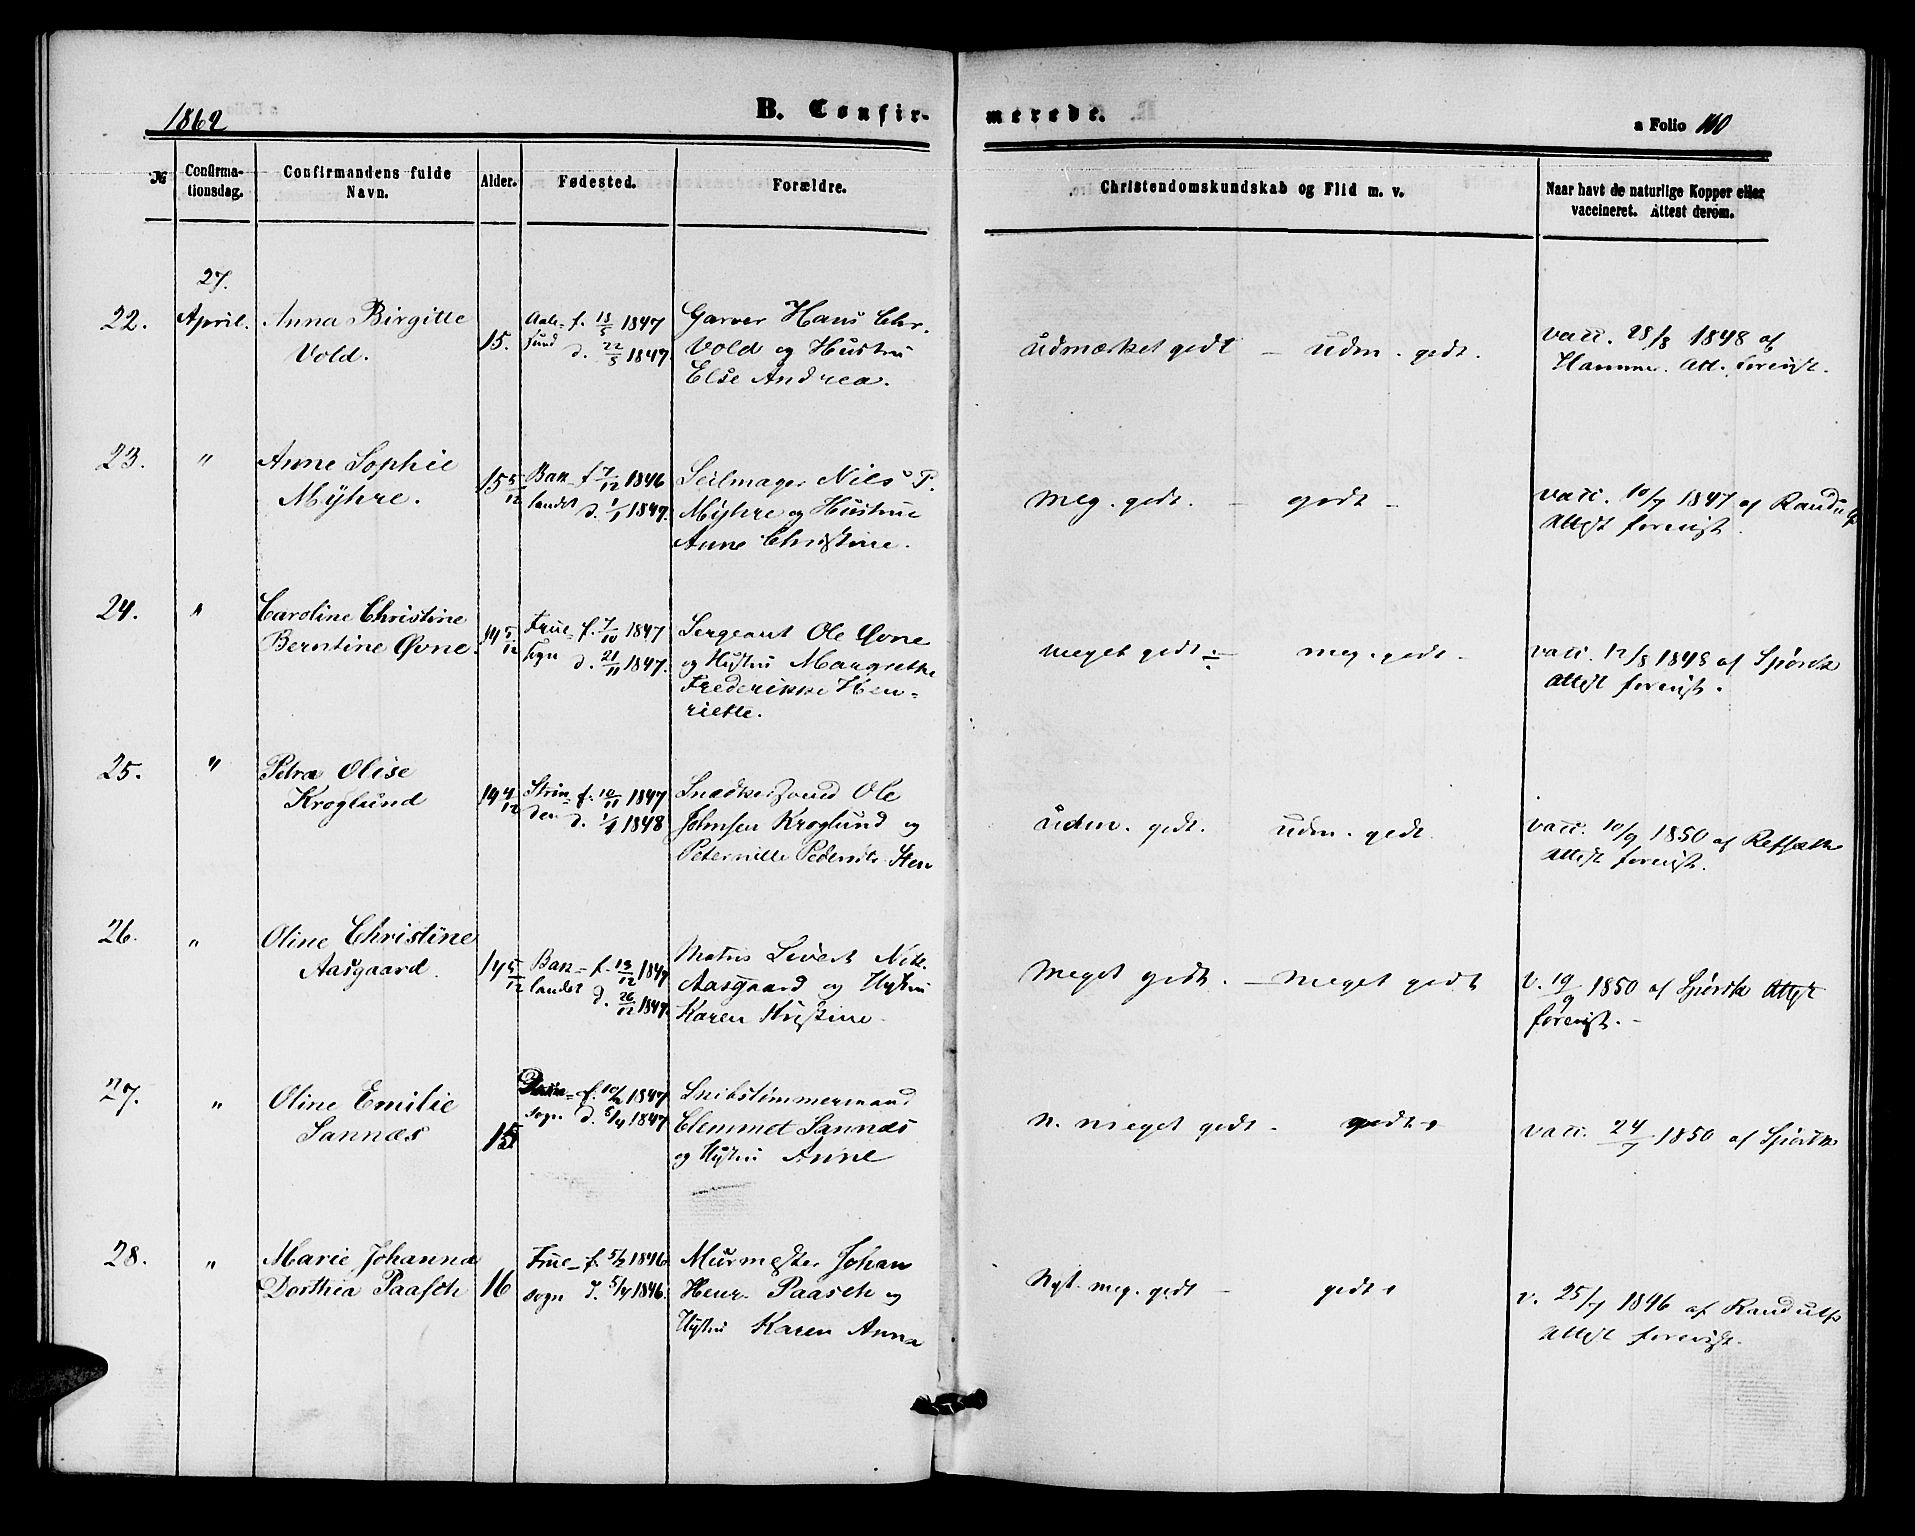 1862
B. Confir-
merede.
a Folio 110
№
Confirma-
tionsdag.
Confirmandens fulde
Navn.
Alder.
Fødested.
Forældre.
Christendomskundskab og Flid m. v.
Naar havt de naturlige Kopper eller
vaccineret. Attest derom.
27.
22. April. Anna Birgitte
Vold.
15.
Aale- f. 13/5 1847
sund d. 22/5 1847
Garver Hans Chr.
Vold og Hustru
Else Andrea.
Udmærket godt - udm. godt.
vacc. 28/8 1848 af
Hammer. Att. forevist.
23. " Anne Sophie
Myhre.
15 5/12
Bak- f. 7/12 1846
landet d. 1/1 1847.
Seilmager Niels P.
Myhre og Hustrue
Anne Christine.
Meg. godt. - godt -
vacc. 10/7 1847 af Randulf
Attest forevist.
24. " Caroline Christine
Berntine Øvne.
14 5/12
Frue- f. 7/10 1847
sogn d. 21/11 1847.
Sergeant Ole Øvne
og Hustru Margrethe
Frederikke Hen-
riette.
Meget godt ÷ meg. godt -
vacc. 12/8 1848 af Spørck
Attest forevist.
25. " Petra Olise
Kroglund
14 4/12
Strin- f. 10/11 1847
den d. 1/1 1848
Snedkersvend Ole
Johnsen Kroglund og
Peternille Pedersdtr. Sten
Udm. godt. udm. godt.
vacc. 10/9 1850 af
Attest forevist.
26. " Oline Christine
Aasgaard.
14 5/12
Bak- f. 13/12 1847
landet d. 26/12 1847.
Matros Sivert Nik.
Aasgaard og Hustru
Karen Kristine.
Meget godt. - meget godt
v. 19/9 1850 af Spørck Attest
forevist. -
27. " Oline Emilie
Sannæs
15
f. 10/2 1847
sogn d. 5/4 1847
Skibstimmermand
Clemmet Sannæs
og Hustru Anne
N. meget godt - godt +
vacc. 24/7 1850 af Spørck
28. " Marie Johanna
Dorthea Paasch
16
Frue- f. 5/2 1846
sogn d. 5/4 1846.
Murmester Johan
Henr. Paasch og
Hustru Karen Anna
Nyst. meg. godt - godt +
v. 25/7 1846 af Randulf
Attest forevist.